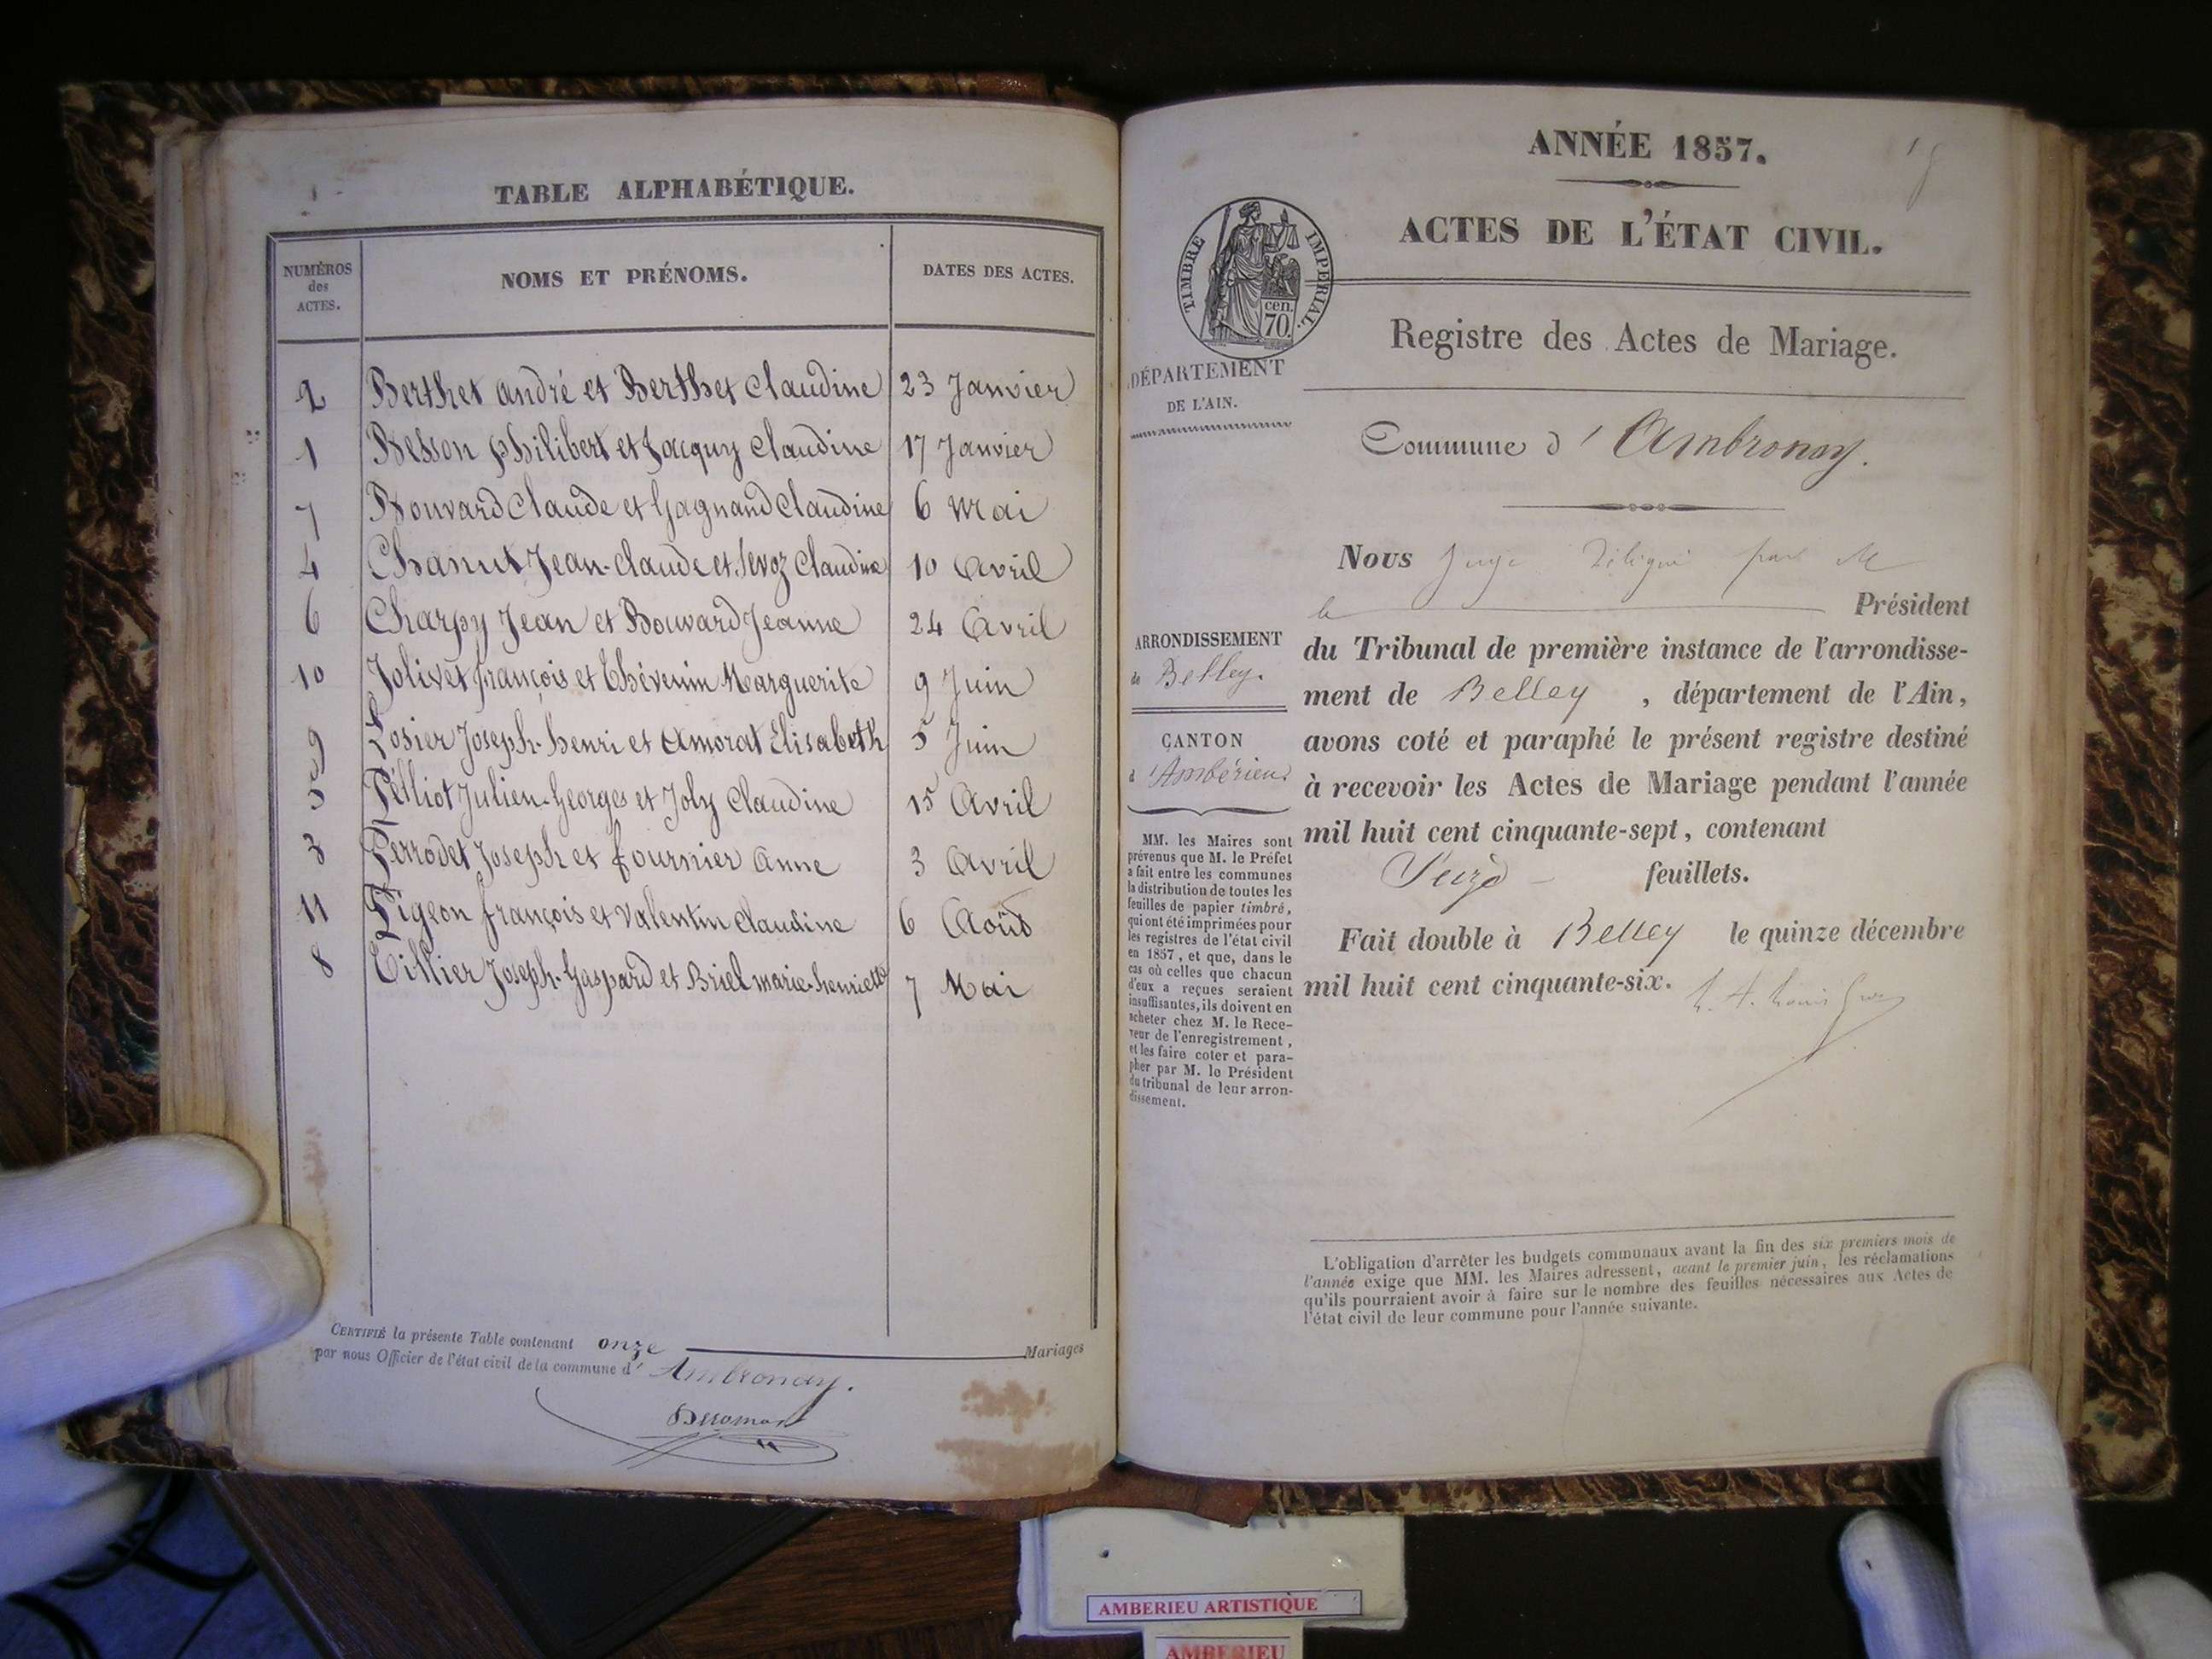 TABLE ALPHABÉTIQUE.
NUMÉROS des ACTES. NOMS ET PRÉNOMS. DATES DES ACTES.
2 Berthet andré et Berthet Claudine 23 Janvier
1 Besson philibert et Jacquy Claudine 17 Janvier
7 Bouvard Claude et Gagnand Claudine 6 Mai
4 Chanut Jean-Claude et Sevoz Claudine 10 Avril
6 Charpy Jean et Bouvard Jeanne 24 Avril
10 Jolivet françois et Thévenin Marguerite 9 Juin
9 Losier Joseph-henri et Amorat Elisabeth 5 Juin
5 Pélliot Julien-Georges et Joly Claudine 15 Avril
3 Perrodet Joseph et fournier Anne 3 Avril
11 Pigeon françois et Valentin Claudine 6 Août
8 Tillier Joseph-Gaspard et Briel marie-henriette 7 Mai
CERTIFIÉ la présente Table contenant onze Mariages
par nous Officier de l'état civil de la commune d' Ambronay.
ANNÉE 1857.
ACTES DE L'ÉTAT CIVIL.
TIMBRE IMPERIAL.
cen.
70.
Registre des Actes de Mariage.
DÉPARTEMENT
DE L'AIN.
Commune d' Ambronay.
Nous Juge délégué par M
le Président
du Tribunal de première instance de l'arrondisse-
ment de Belley , département de l'Ain,
avons coté et paraphé le présent registre destiné
à recevoir les Actes de Mariage pendant l'année
mil huit cent cinquante-sept, contenant
Seize feuillets.
Fait double à Belley le quinze décembre
mil huit cent cinquante-six.
ARRONDISSEMENT
de Belley.
CANTON
d'Ambérieu
MM. les Maires sont
prévenus que M. le Préfet
a fait entre les communes
la distribution de toutes les
feuilles de papier timbré,
qui ont été imprimées pour
les registres de l'état civil
en 1857, et que, dans le
cas où celles que chacun
d'eux a reçues seraient
insuffisantes, ils doivent en
acheter chez M. le Rece-
veur de l'enregistrement,
et les faire coter et para-
pher par M. le Président
du tribunal de leur arron-
dissement.
L'obligation d'arrêter les budgets communaux avant la fin des six premiers mois de
l'année exige que MM. les Maires adressent, avant le premier juin, les réclamations
qu'ils pourraient avoir à faire sur le nombre des feuilles nécessaires aux Actes de
l'état civil de leur commune pour l'année suivante.
AMBERIEU ARTISTIQUE
AMBERIEU